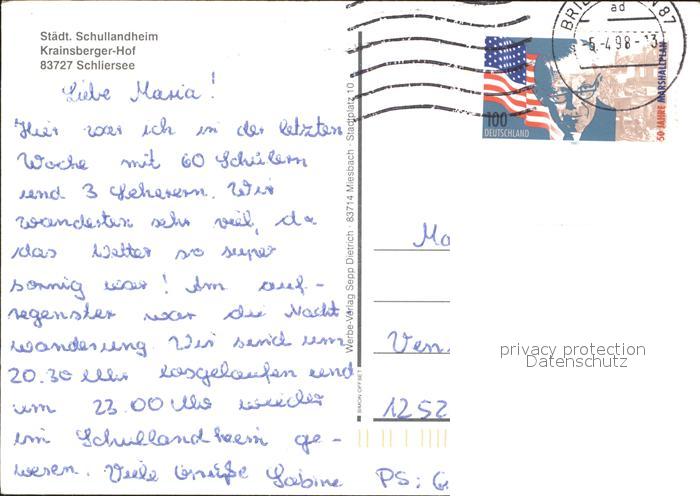 Städt. Schullandheim
Krainsberger-Hof
83727 Schliersee
Liebe Maria!
Hier war ich in der letzten
Woche mit 60 Schülern
und 3 Lehrern. Wir
wanderten sehr viel, da
das Wetter so super
sonnig war! Am auf-
regensten war die Nacht
wanderung. Wir sind um
20.30 Uhr losgelaufen und
um 23.00 Uhr wieder
im Schullandheim ge-
wesen. Viele Grüße Sabine
PS: G
Werbe-Verlag Sepp Dietrich · 83714 Miesbach · Stadtplatz 10
SIMON OFFSET
87
ad
-5.-4.98-13
100
DEUTSCHLAND
50 JAHRE MARSHALLPLAN
Ma
Ven
1252
privacy protection
Datenschutz